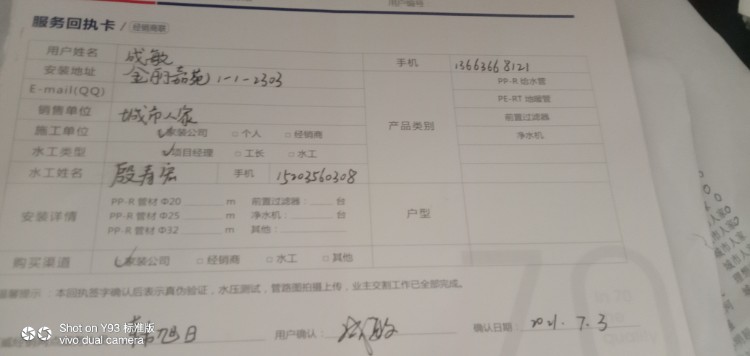 用户编号
服务回执卡 / 经销商联
用户姓名 成敏 手机 13663668121
安装地址 金色嘉苑1-1-2303 产品类别 PP-R 给水管
E-mail(QQ) PE-RT 地暖管
销售单位 城市人家 前置过滤器
施工单位 ✓家装公司 □个人 □经销商 净水机
水工类型 ✓项目经理 □工长 □水工
水工姓名 殷寿宏 手机 15203560308
安装详情 PP-R 管材 Φ20 m 前置过滤器: 台 户型
PP-R 管材 Φ25 m 净水机: 台
PP-R 管材 Φ32 m 其他:
购买渠道 ✓家装公司 □经销商 □水工 □其他
温馨提示:本回执签字确认后表示真伪验证,水压测试,管路图拍摄上传,业主交割工作已全部完成。
旭日 用户确认: 成敏 确认日期 2021.7.3
Shot on Y93 标准版
vivo dual camera